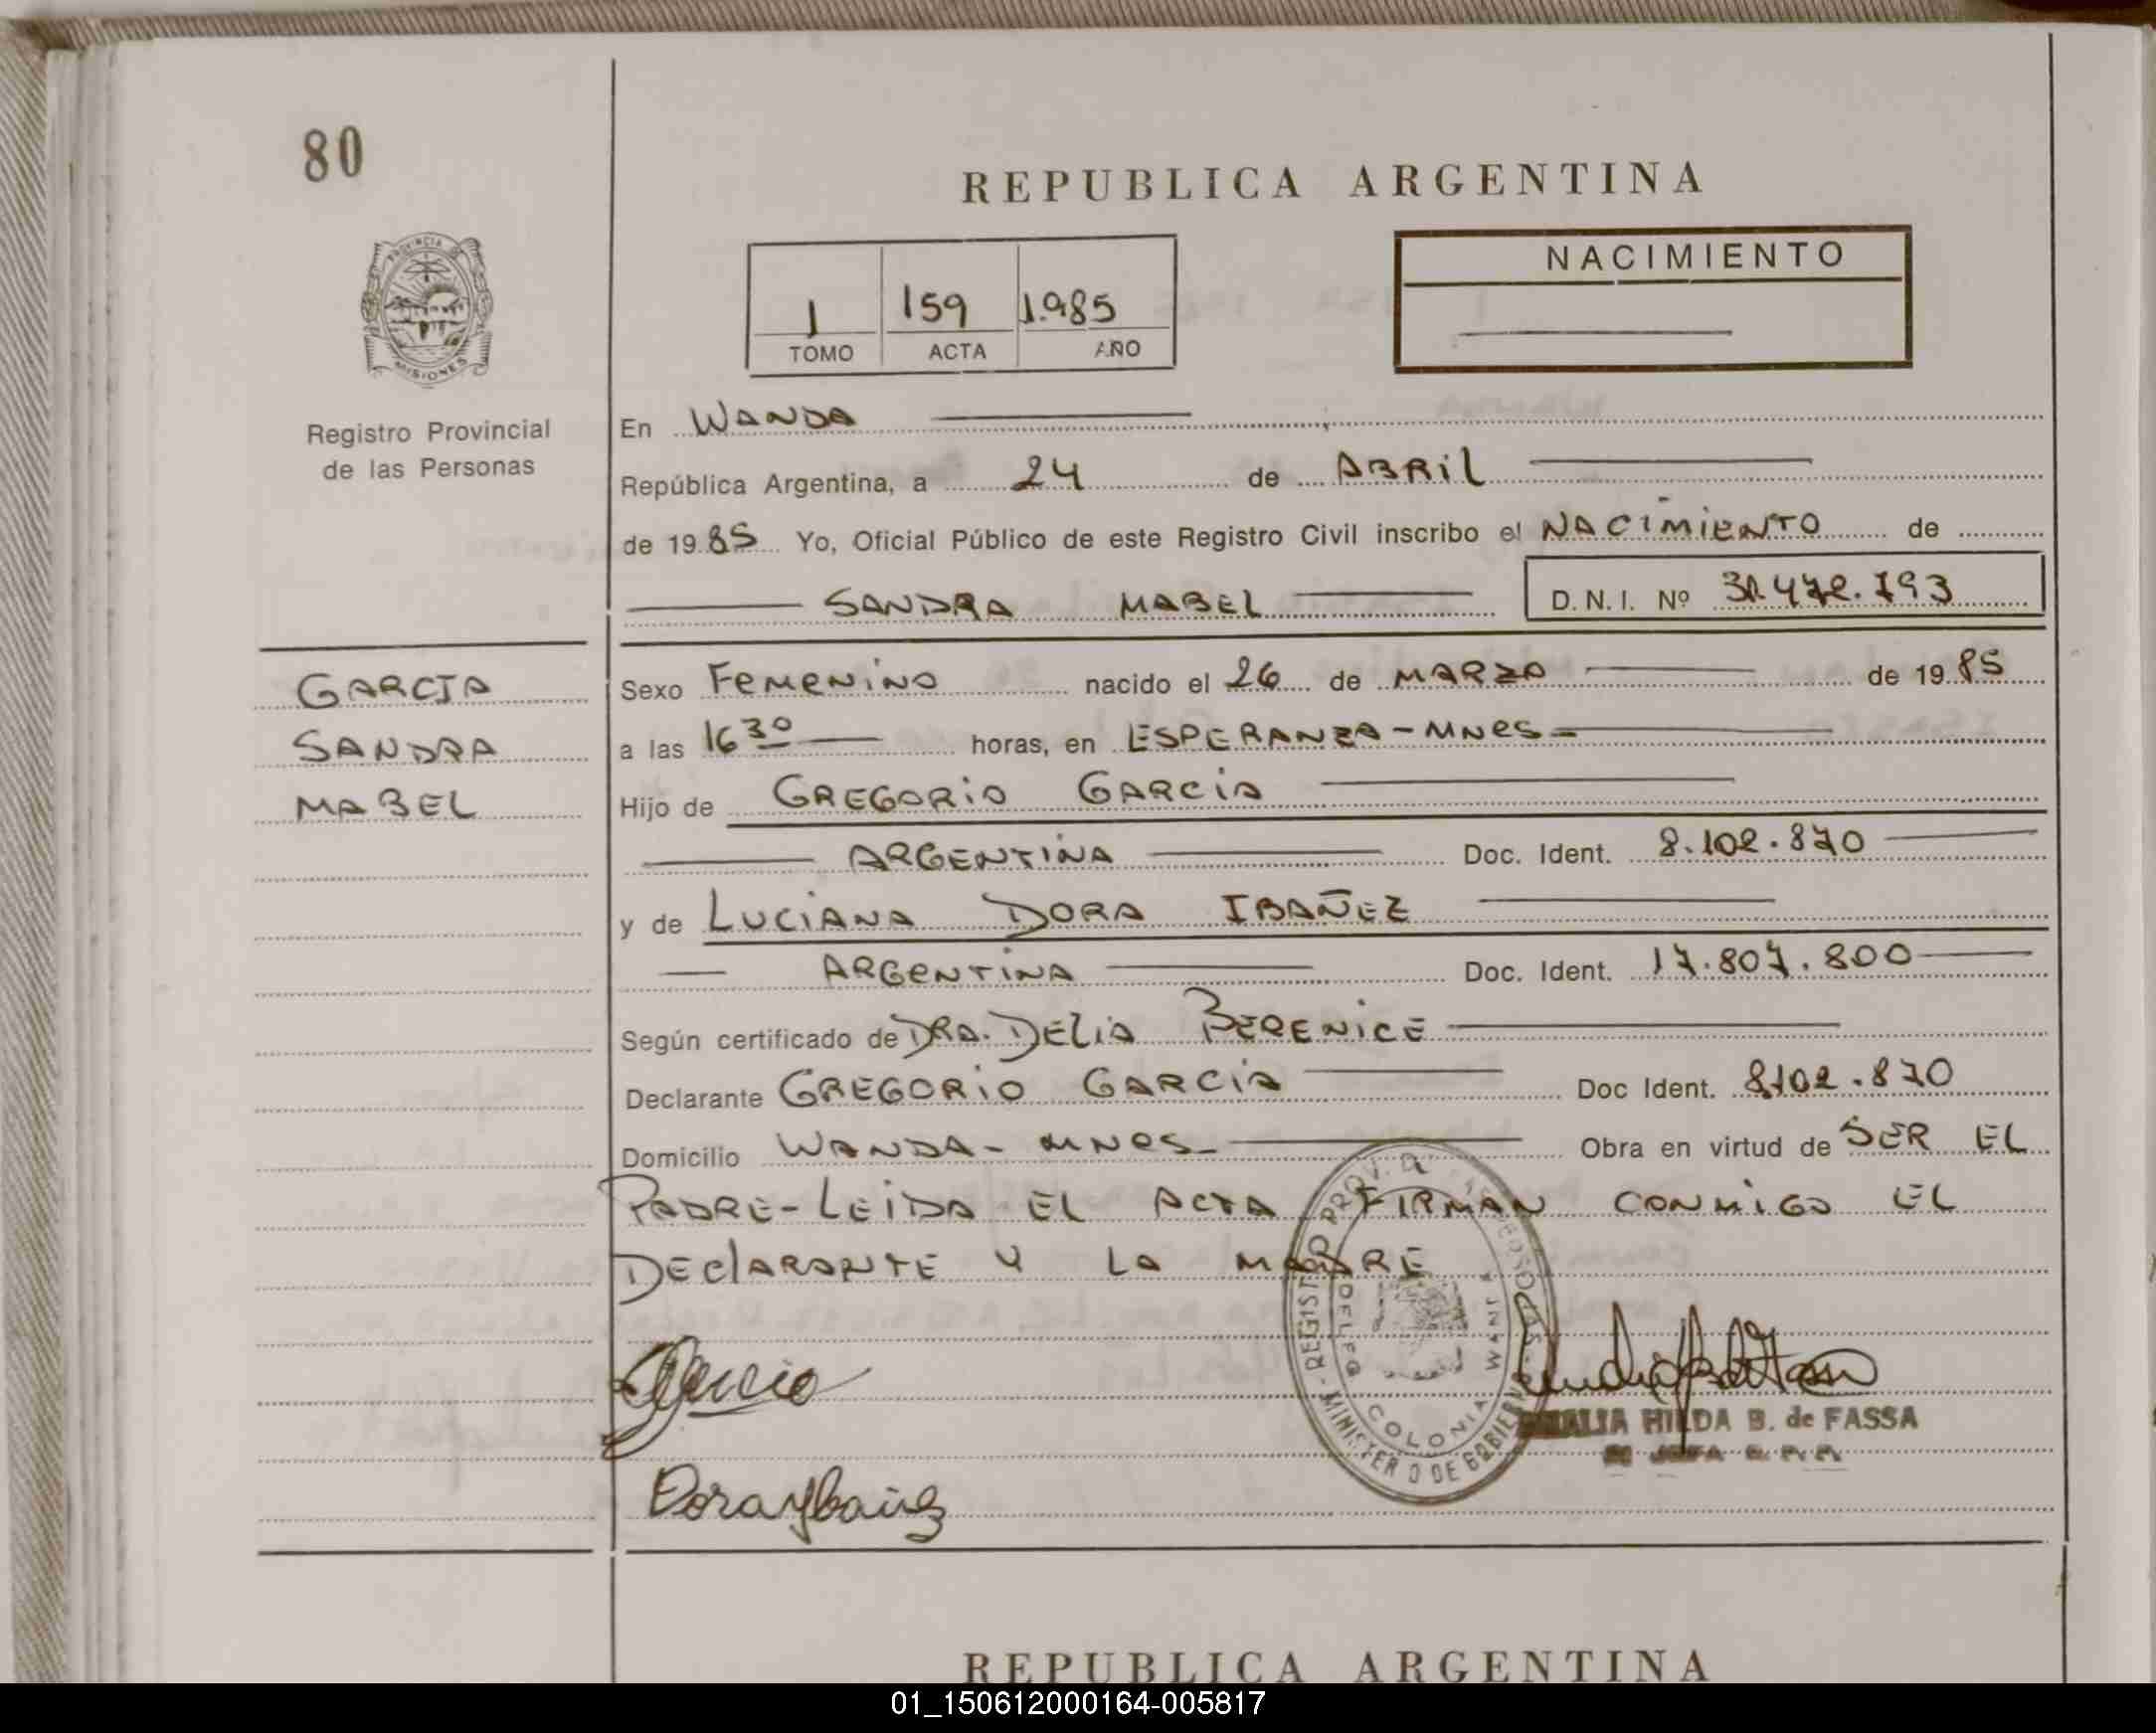 80
REPUBLICA ARGENTINA
PROVINCIA DE
MISIONES
Registro Provincial
de las Personas
1 159 1.985
TOMO ACTA AÑO
NACIMIENTO
En WANDA
República Argentina, a 24 de ABRIL
de 19 85 Yo, Oficial Público de este Registro Civil inscribo el NACIMIENTO de
SANDRA MABEL D.N.I. Nº
GARCIA
SANDRA
MABEL
Sexo FEMENINO nacido el 26 de MARZO de 19 85
a las 16 30 horas, en ESPERANZA - MNES -
Hijo de GREGORIO GARCIA
ARGENTINA Doc. Ident. 8.102.870
y de LUCIANA DORA IBAÑEZ
ARGENTINA Doc. Ident. 17.807.800
Según certificado de DRA. DELIA BERENICE
Declarante GREGORIO GARCIA Doc Ident. 8.102.870
Domicilio WANDA - MNES - Obra en virtud de SER EL
PADRE - LEIDA EL ACTA FIRMAN CONMIGO EL
DECLARANTE Y LA MADRE
COLONIA WANDA
MINISTERIO DE GOBIERNO
HILDA B. de FASSA
Dora Ybañez
REPUBLICA ARGENTINA
01_150612000164-005817